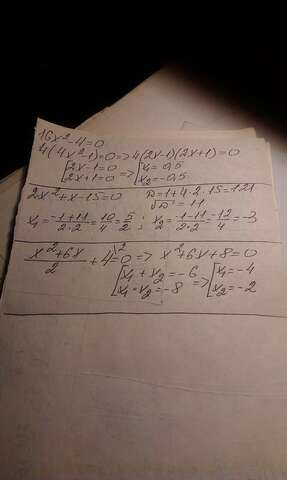 16x²-4=0
4(4x²-1)=0=>4(2x-1)(2x+1)=0
[2x-1=0 => [x₁=0,5
[2x+1=0 [x₂=-0,5
2x²+x-15=0 D=1+4·2·15=121
√D=11
x₁=(-1+11)/(2·2)=10/4=5/2; x₂=(-1-11)/(2·2)=-12/4=-3
(x²+6x)/2+4=0 |·2 => x²+6x+8=0
[x₁+x₂=-6 => [x₁=-4
[x₁·x₂=-8 [x₂=-2